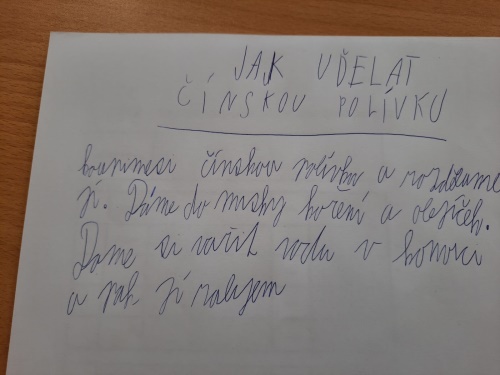 JAK UDĚLAT
ČÍNSKOU POLÍVKU
koupíme si čínskou polívku a rozděláme
jí. Dáme do misky koření a olejíček.
Dáme si vařit vodu v konvici
a pak jí zalejem